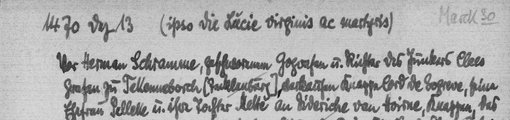 1470 Dez 13 (ipso die Lucie virginis ac martyris) Marck 30
Vor Herman Schramme, geschworenen Gografen u. Richter des Junkers Clees
Grafen zu Tekeneborch [Tecklenburg], verkaufen Knappe Cord de Bogreve, seine
Ehefrau Zelleke u. ihre Tochter Mette an Dideriche van Horne, Knappen, das